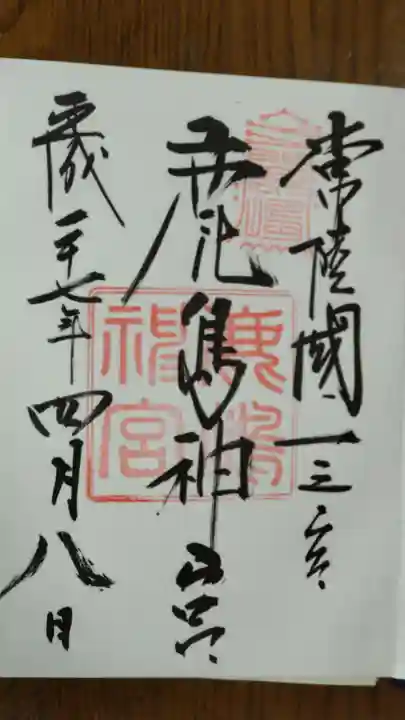 常陸國一之宮
鹿島神宮
平成二十七年四月八日
鹿島
神宮